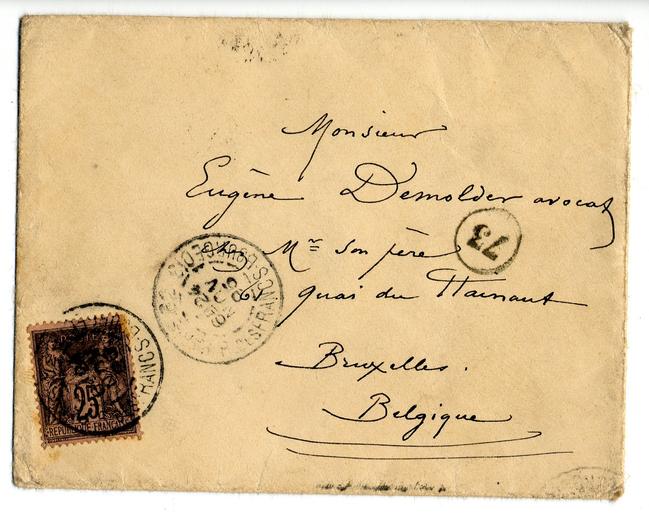 Monsieur
Eugène Demolder avocat
Mr son père
quai du Hainaut
Bruxelles.
Belgique
73
25
REPUBLIQUE FRANCAISE